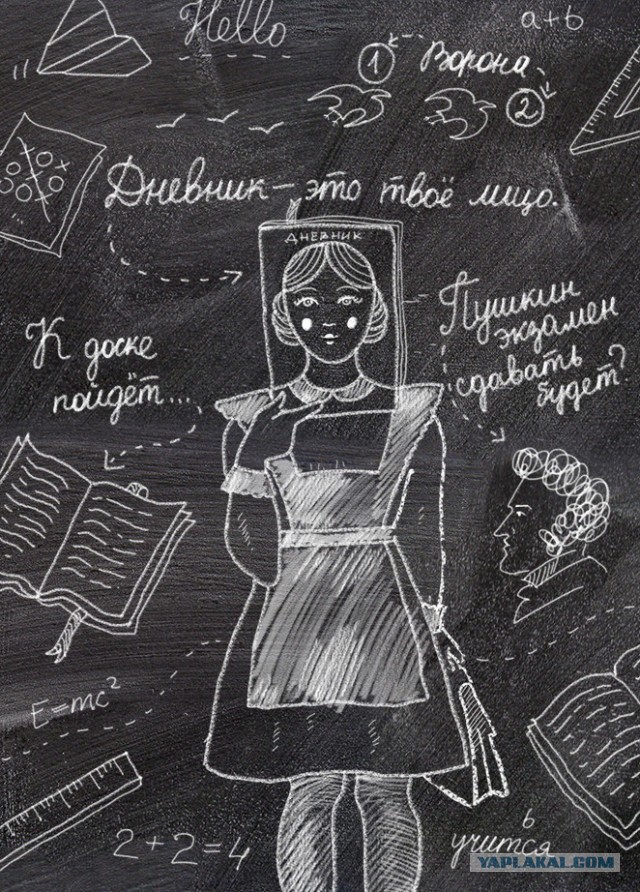 Hello
a+b
1
Ворона
2
Дневник — это твоё лицо.
ДНЕВНИК
К доске
пойдёт...
Пушкин
экзамен
сдавать
будет?
E=mc²
2+2=4
ь
учится
YAPLAKAL.COM